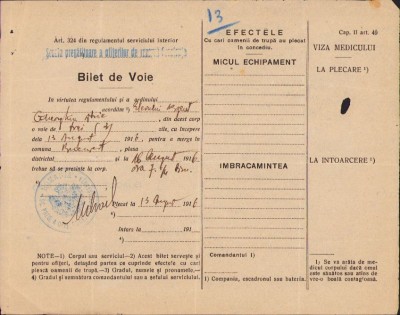 Art. 324 din regulamentul serviciului interior
Bilet de Voie
In virtutea regulamentului și a ordinului
acordăm ¹)
din acest corp
o voie de trei (3) zile, cu începere
dela 13 August 1916 pentru a merge în
comuna plasa
districtul și la 16 August 1916
trebue să se prezinte la corp.
Plecat la 13 August 1916
Intors la 191
NOTE—1) Corpul sau serviciul.—2) Acest bilet servește și
pentru ofițeri, detașând partea ce cuprinde efectele cu cari
pleacă oamenii de trupă.—3) Gradul, numele și pronumele.—
4) Gradul și semnătura comandantului sau a șefului serviciului.
13
EFECTELE
Cu cari oamenii de trupă au plecat
în concediu.
MICUL ECHIPAMENT
IMBRACAMINTEA
Comandantul ¹)
1) Compania, escadronul sau bateria.
Cap. II art. 45
VIZA MEDICULUI
LA PLECARE ¹)
LA INTOARCERE ¹)
1) Se va arăta de medicul corpului dacă omul este sănătos sau atins de vre-o boală contagioasă.